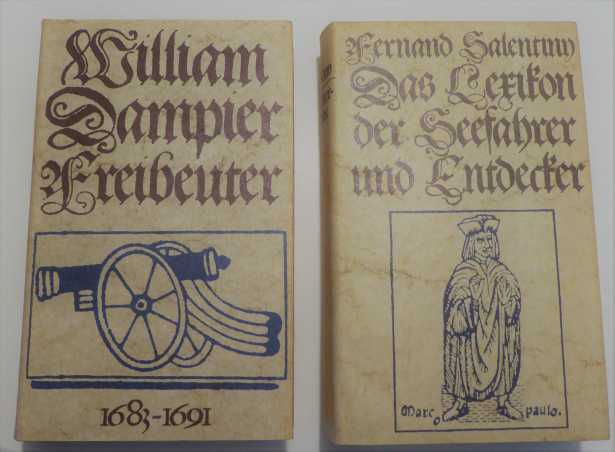 William
Dampier
Freibeuter
1683-1691
Fernand Salentiny
Das Lexikon
der Seefahrer
und Entdecker
Marco paulo.